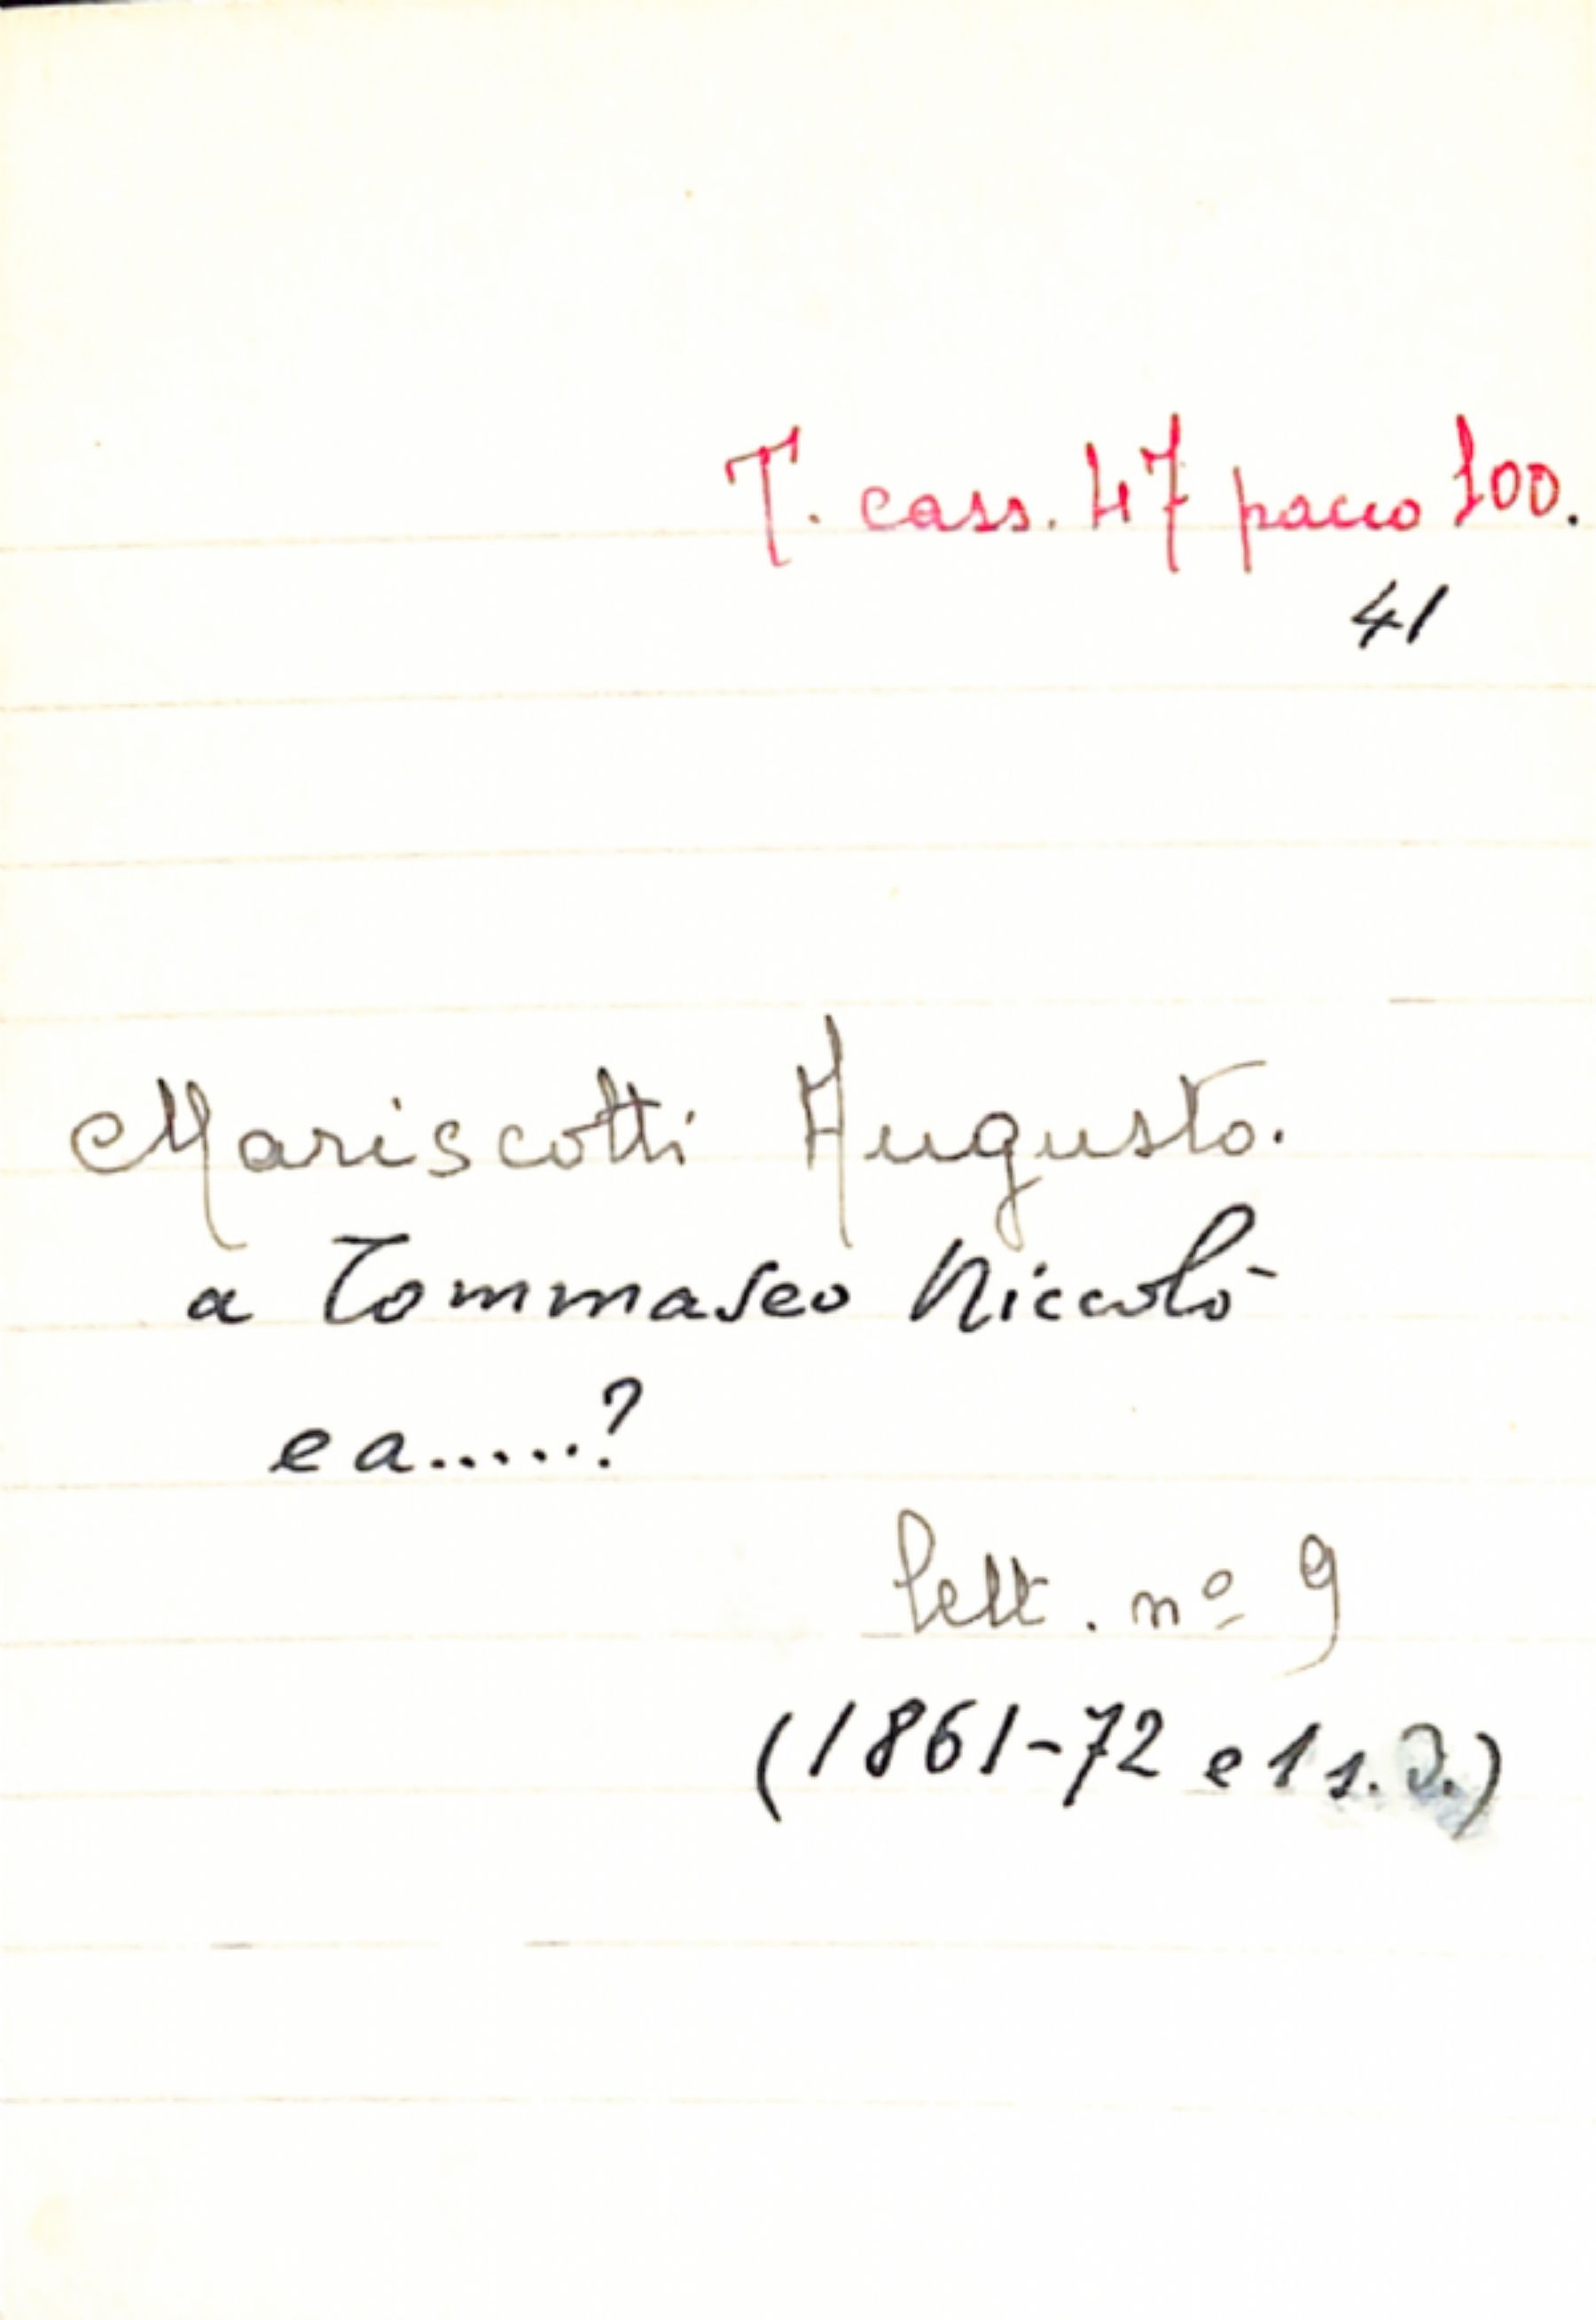 T. cass. 47 pacco 100.
41
Mariscotti Augusto.
a Tommaseo Niccolò
e a.....?
lett. nº 9
(1861-72 e 1 s.d.)